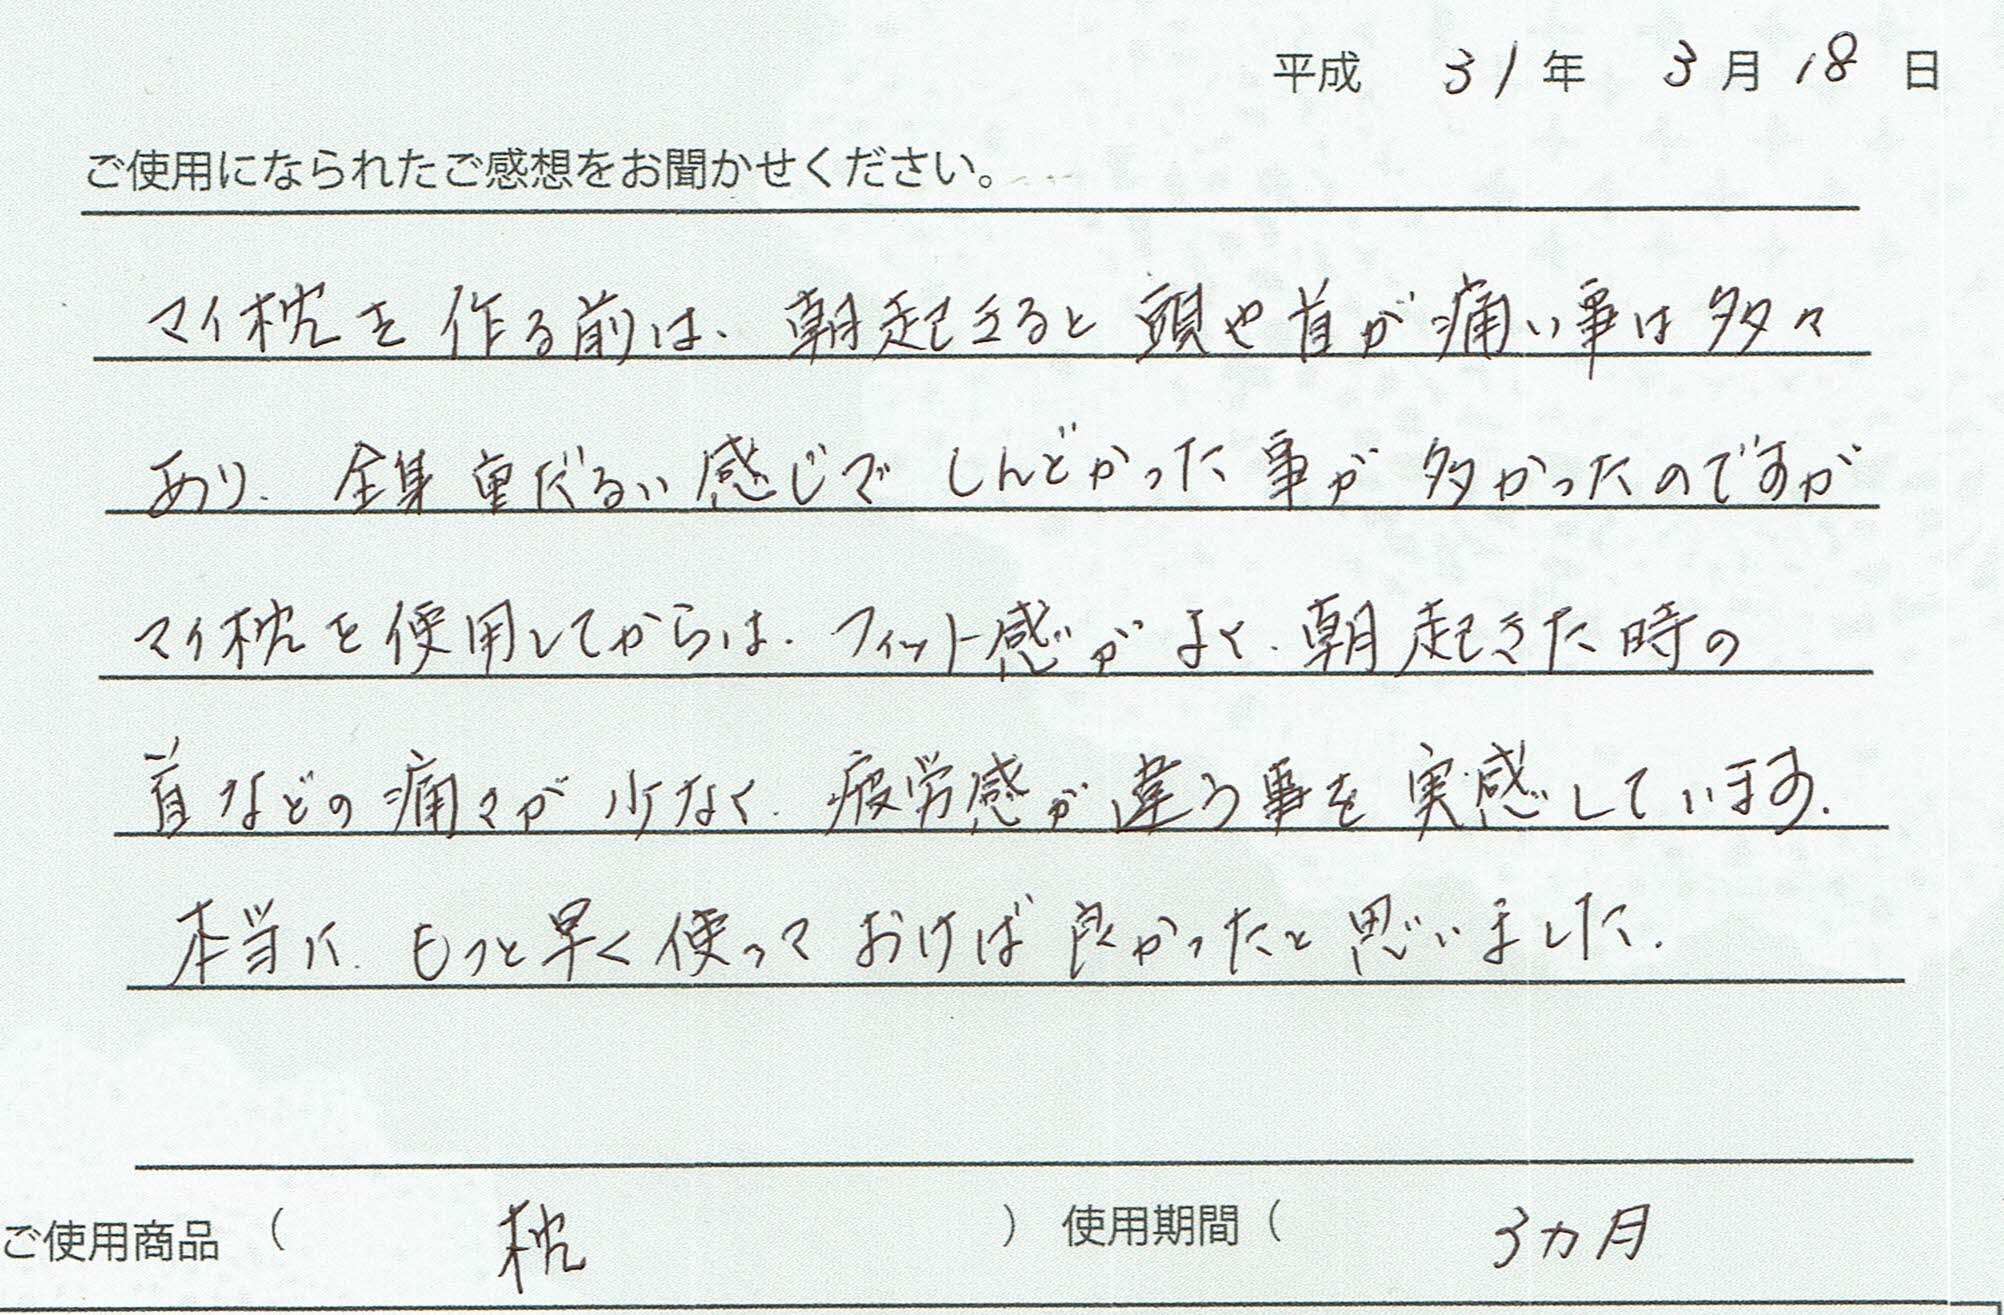 平成 31年 3月18日
ご使用になられたご感想をお聞かせください。
マイ枕を作る前は、朝起きると頭や首が痛い事は多々
あり、全身重だるい感じでしんどかった事が多かったのですが
マイ枕を使用してからは、フィット感がよく、朝起きた時の
首などの痛みが少なく、疲労感が違う事を実感しています。
本当に、もっと早く使っておけば良かったと思いました。
ご使用商品（ 枕 ） 使用期間（ 3ヵ月